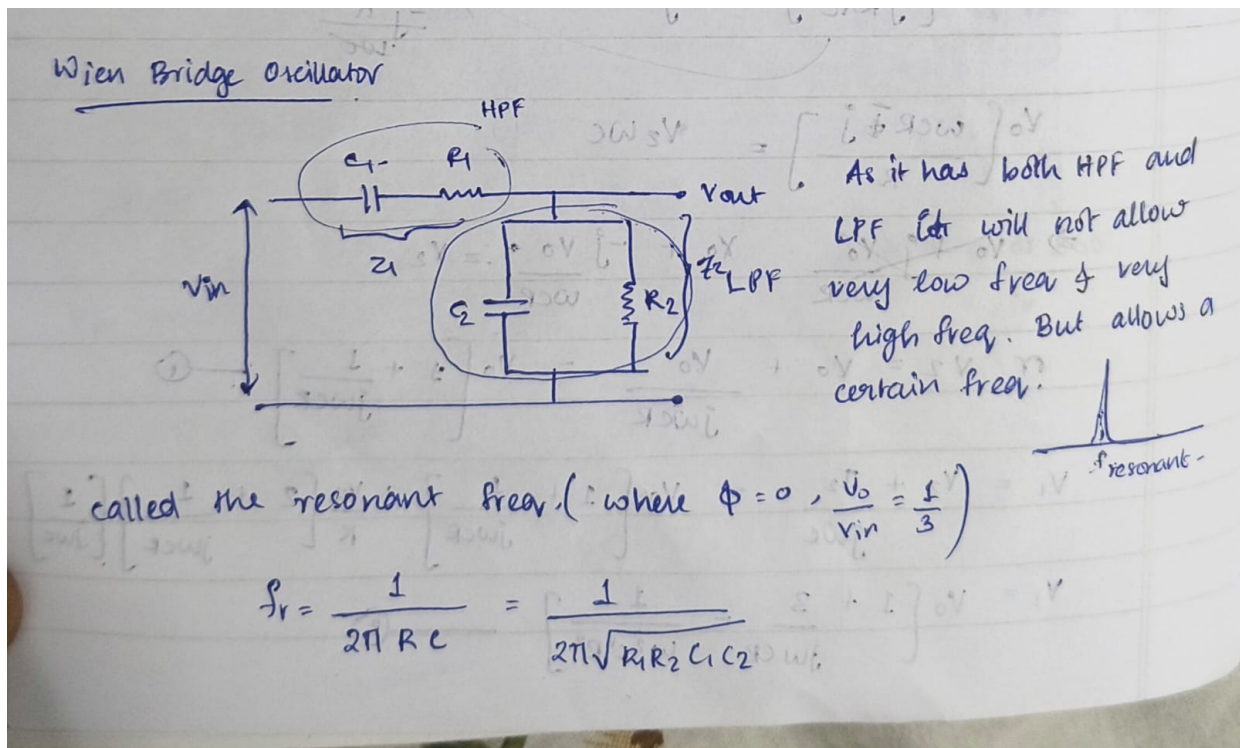 Wien Bridge Oscillator
HPF
C1 R1
Vout
Z1
Vin
C2 R2
Z2 LPF
As it has both HPF and
LPF it will not allow
very low freq & very
high freq. But allows a
certain freq.
f resonant
called the resonant freq. (where ϕ = 0, Vo/Vin = 1/3)
fr = 1/2π R C = 1/2π√R1R2 C1 C2